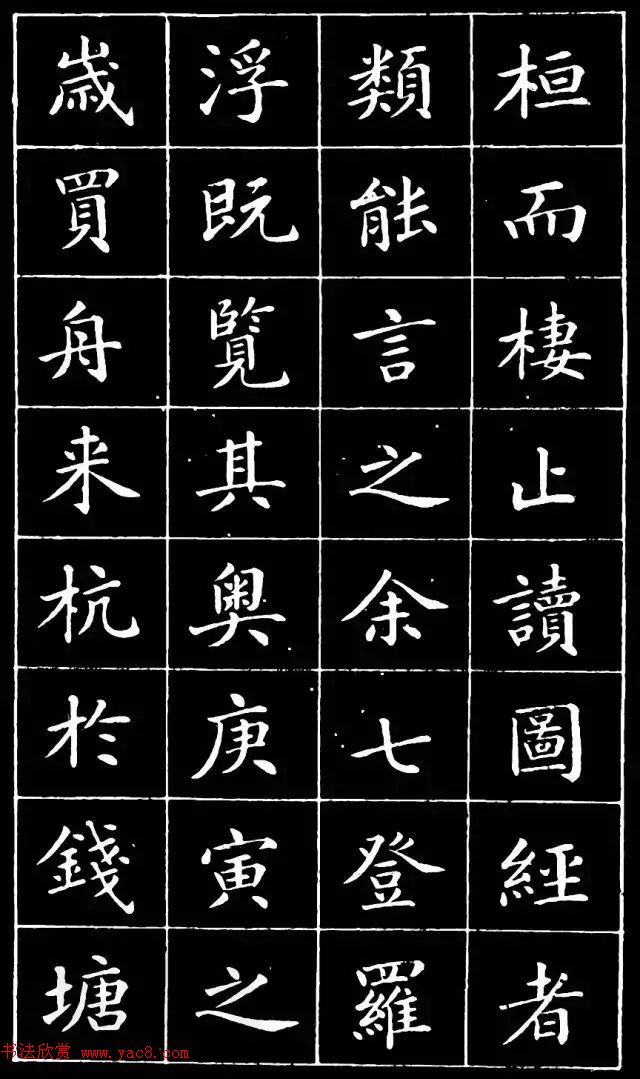 桓而棲止讀圖經者
類能言之余七登羅
浮既覽其奧庚寅之
歲買舟来杭於錢塘
书法欣赏 www.yac8.com